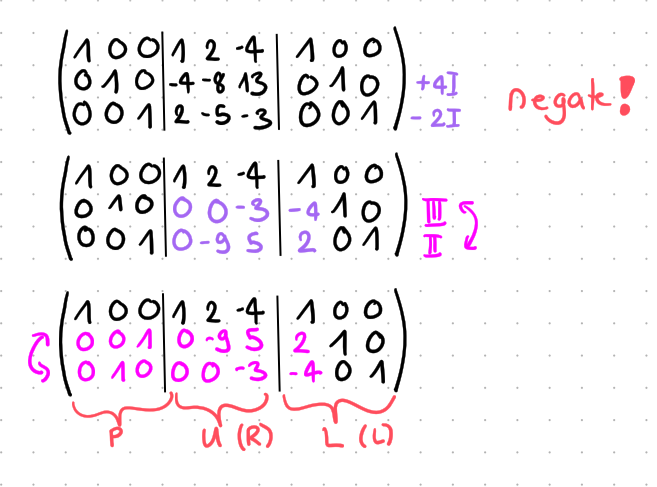 1 0 0 | 1 2 -4 | 1 0 0
0 1 0 | -4 -8 13 | 0 1 0 +4I
0 0 1 | 2 -5 -3 | 0 0 1 - 2I
negate!
1 0 0 | 1 2 -4 | 1 0 0
0 1 0 | 0 0 -3 | -4 1 0 III
0 0 1 | 0 -9 5 | 2 0 1 II
1 0 0 | 1 2 -4 | 1 0 0
0 0 1 | 0 -9 5 | 2 1 0
0 1 0 | 0 0 -3 | -4 0 1
P U (R) L (L)